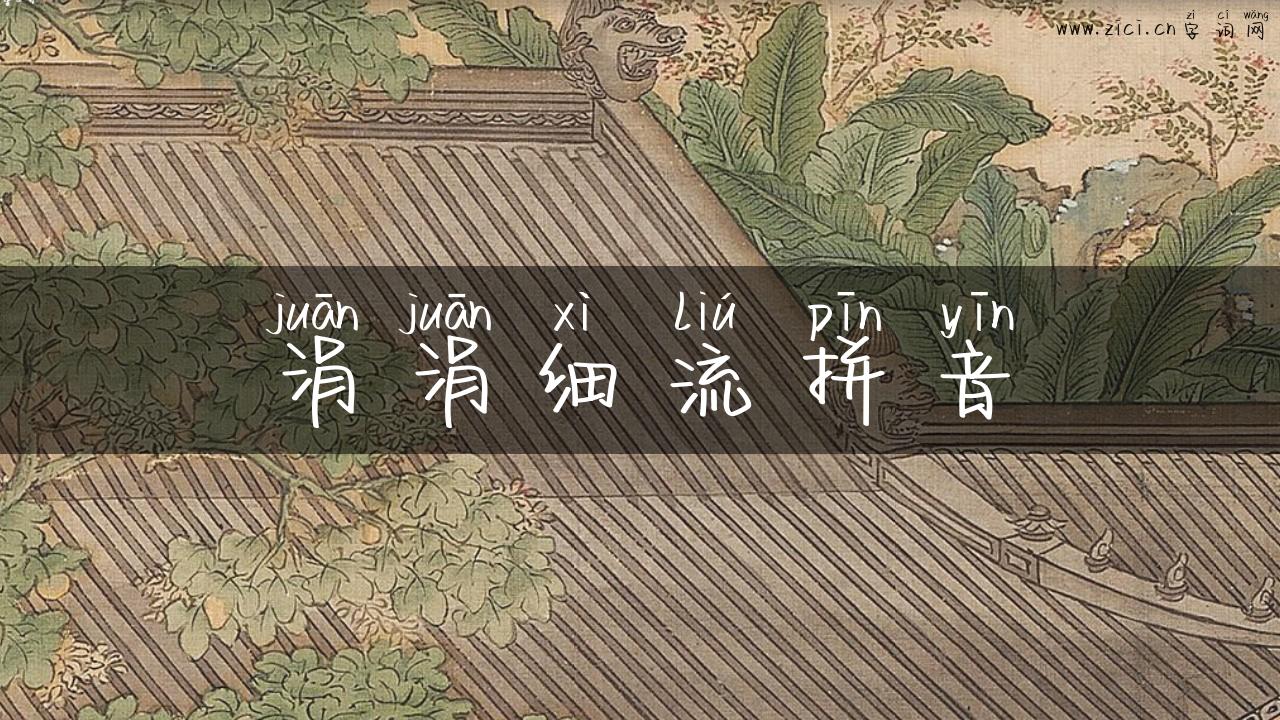 zì cí wǎng
www.zici.cn 字词网
juān juān xì liú pīn yīn
涓涓细流拼音